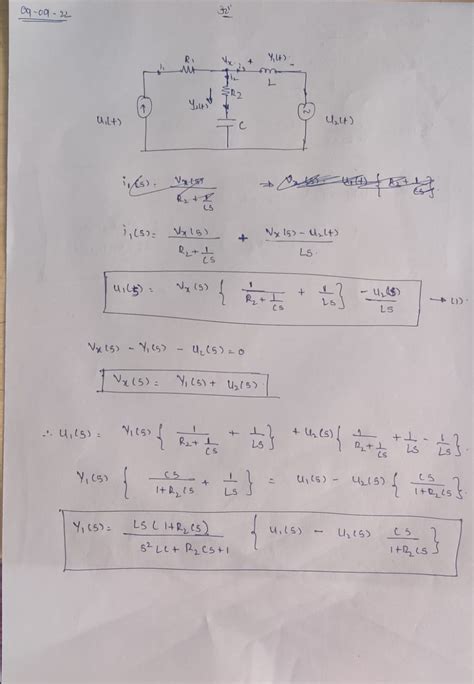 09-09-22
R1 Vx + Y1(t) -
i1 i2 i3 L
R2
Y2(t)
C
U1(t) U2(t)
i1(s) = Vx(s) / (R2 + 1/CS)
i1(s) = Vx(s) / (R2 + 1/CS) + (Vx(s) - U2(t)) / LS
U1(s) = Vx(s) { 1/(R2 + 1/CS) + 1/LS } - U2(s)/LS → (1)
Vx(s) - Y1(s) - U2(s) = 0
Vx(s) = Y1(s) + U2(s)
∴ U1(s) = Y1(s) { 1/(R2 + 1/CS) + 1/LS } + U2(s) { 1/(R2 + 1/CS) + 1/LS - 1/LS }
Y1(s) { CS/(1+R2CS) + 1/LS } = U1(s) - U2(s) { CS/(1+R2CS) }
Y1(s) = LS(1+R2CS) / (S²LC + R2CS + 1) { U1(s) - U2(s) CS/(1+R2CS) }